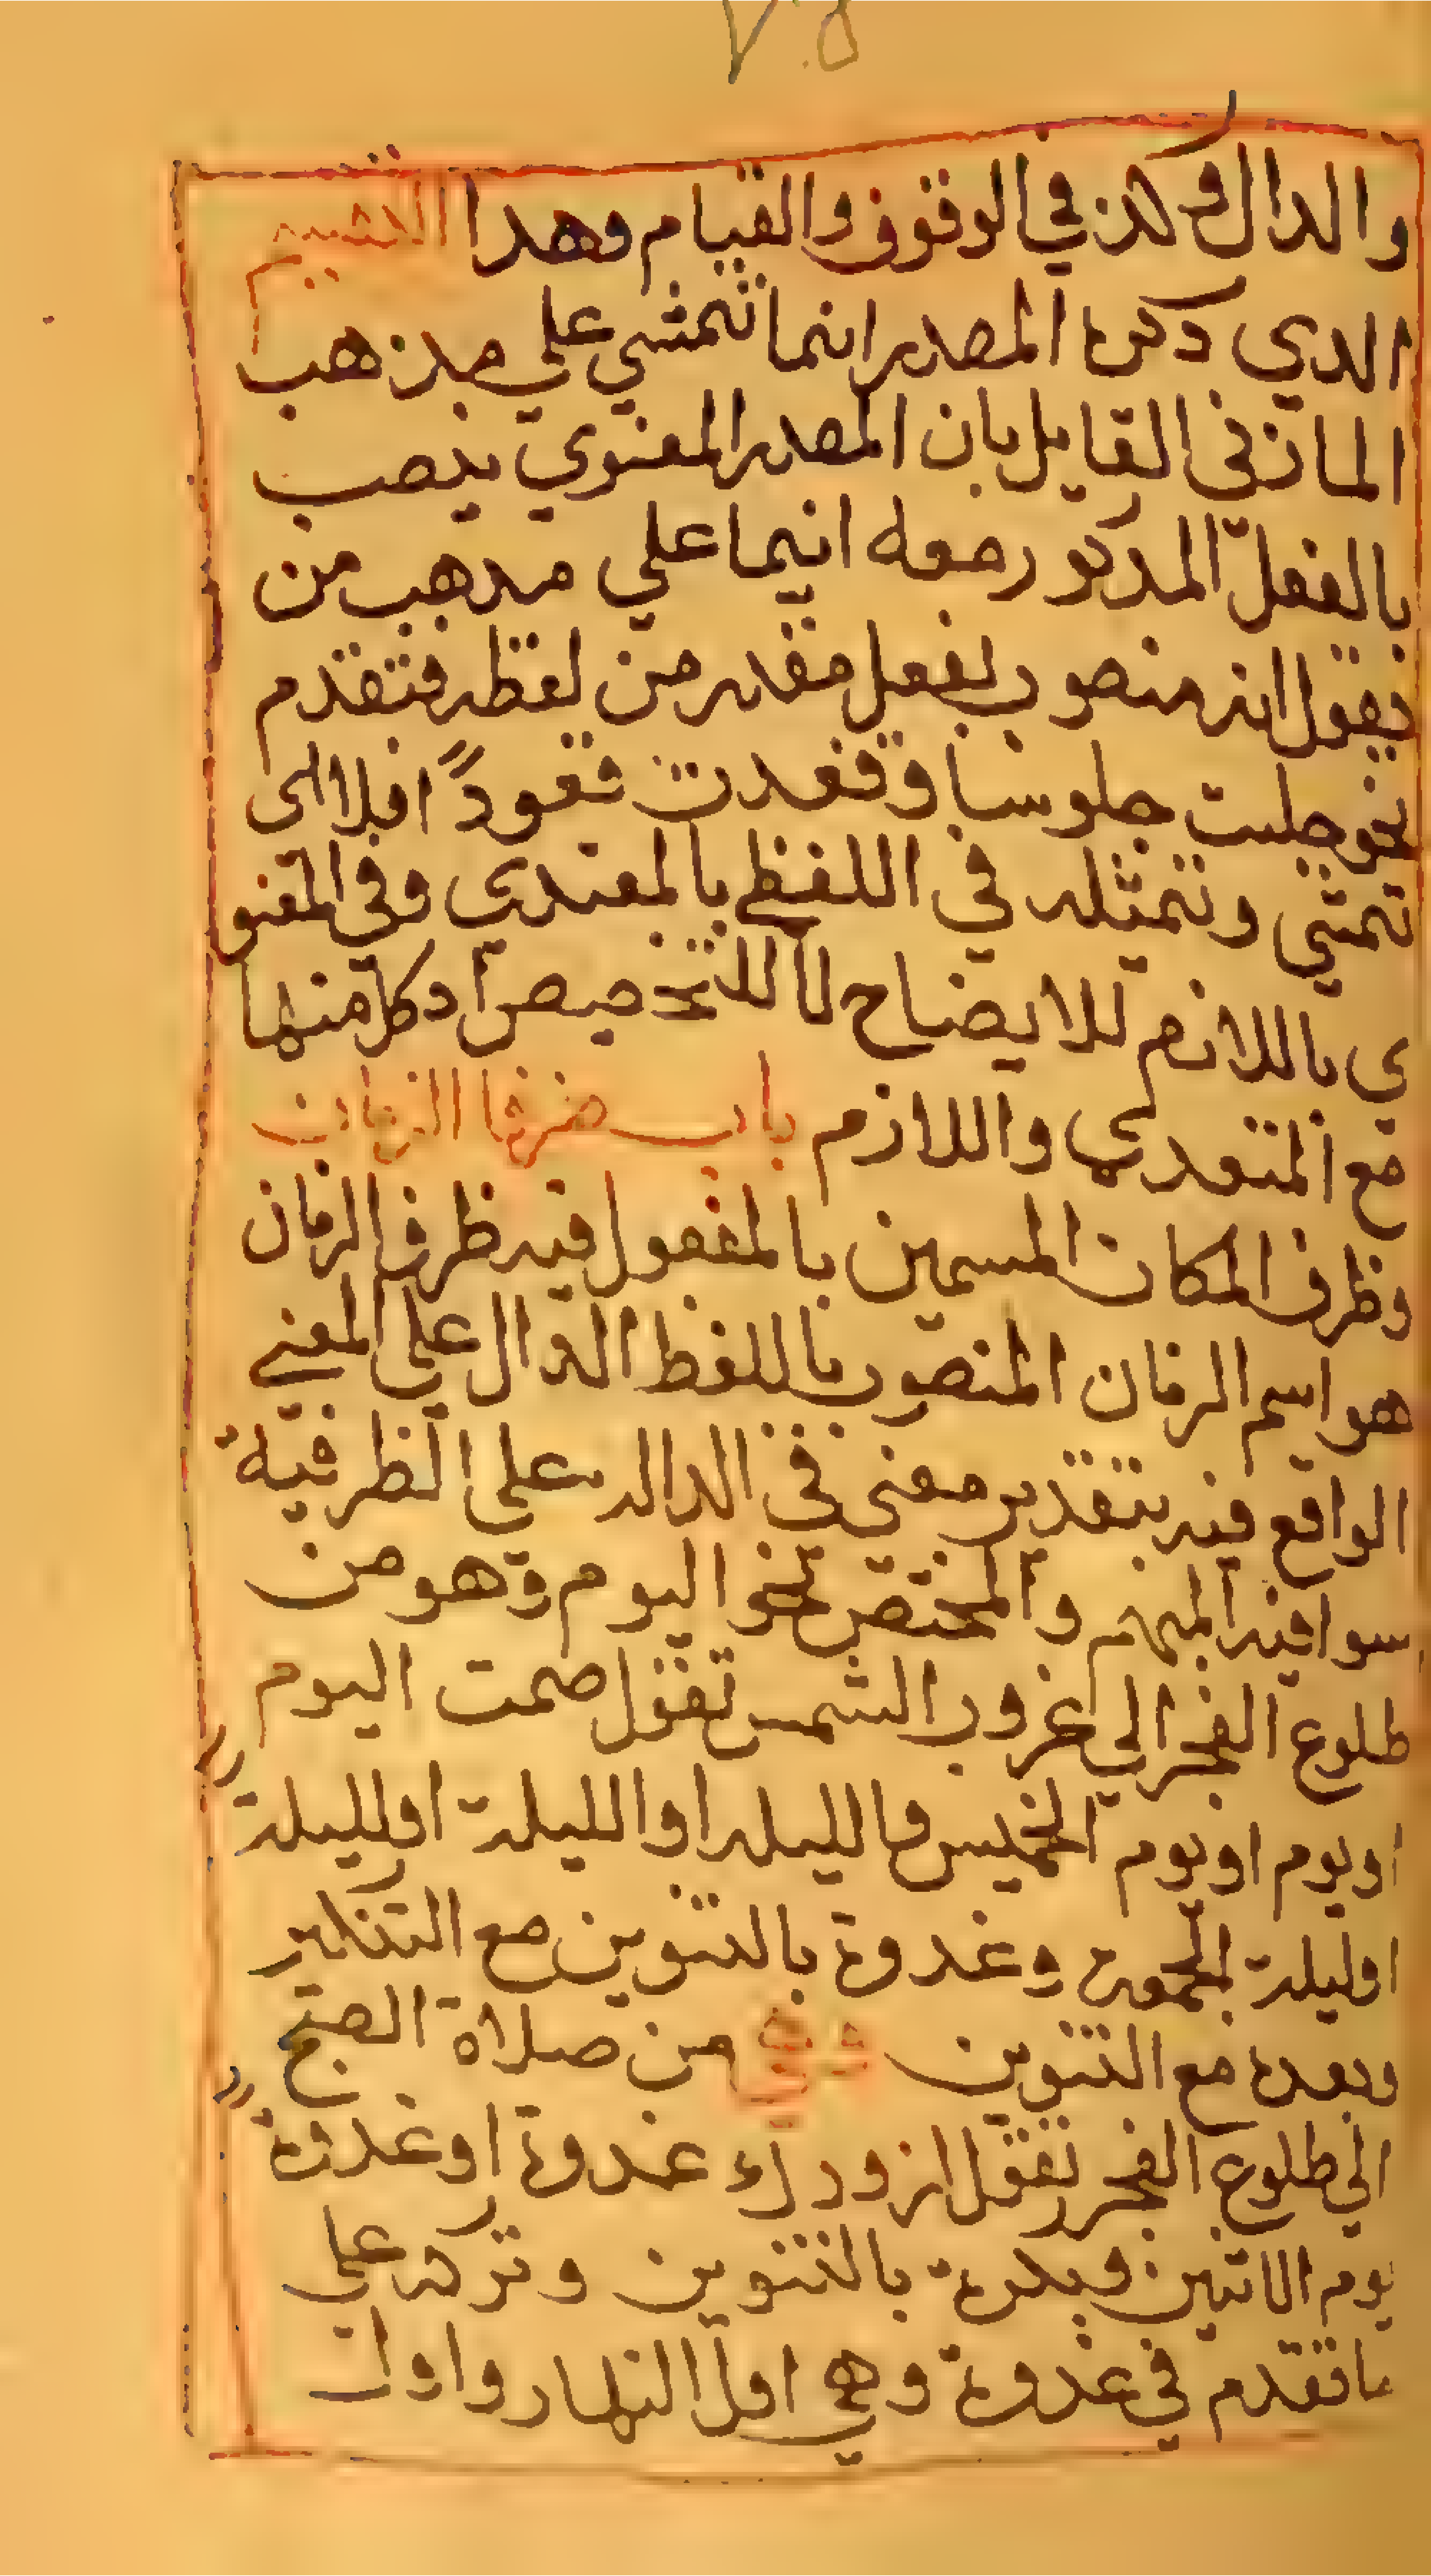 والدال كذا في الوقوف والقيام وهدا التقسيم
الدي دكره المصدر انما تمشي علي مذهب
المازني القايل بان المصدر المعنوي ينصب
بالفعل المدكور معه انيما علي مدهب من
يقول انه منصوب بفعل مقدر من لفظه فتقدم
نحو جلست جلوسا وقعدت قعودًا فلا الى
تمتي وتمثله في اللفظي بالمعتدي وفي المعنو
ي باللازم للايضاح لا للتخصيص اد كل منها
مع المتعدي واللازم باب ضرف الزمان
وظرف المكان المسمين بالمفعول فيه ظرف الزمان
هو اسم الزمان المنصوب باللفظ الدال علي المعني
الواقع فيه بتقدير معني في الداله علي الظرفية
سوا فيه المبهم والمختص نحو اليوم وهو من
طلوع الفجر الي غروب الشمس تقول صمت اليوم
او يوم او يوم الخميس والليله او الليلة او لليلة
او ليلة الجمعة وغدوة بالتنوين مع التنكير
وبعده مع التنوين من صلاة الصبح
الي طلوع الفجر تقول ازورك غدوة او غدوة
يوم الاتنين وبكرة بالتنوين وتركه علي
ماتقدم في غدوة وهي اول النهار واول